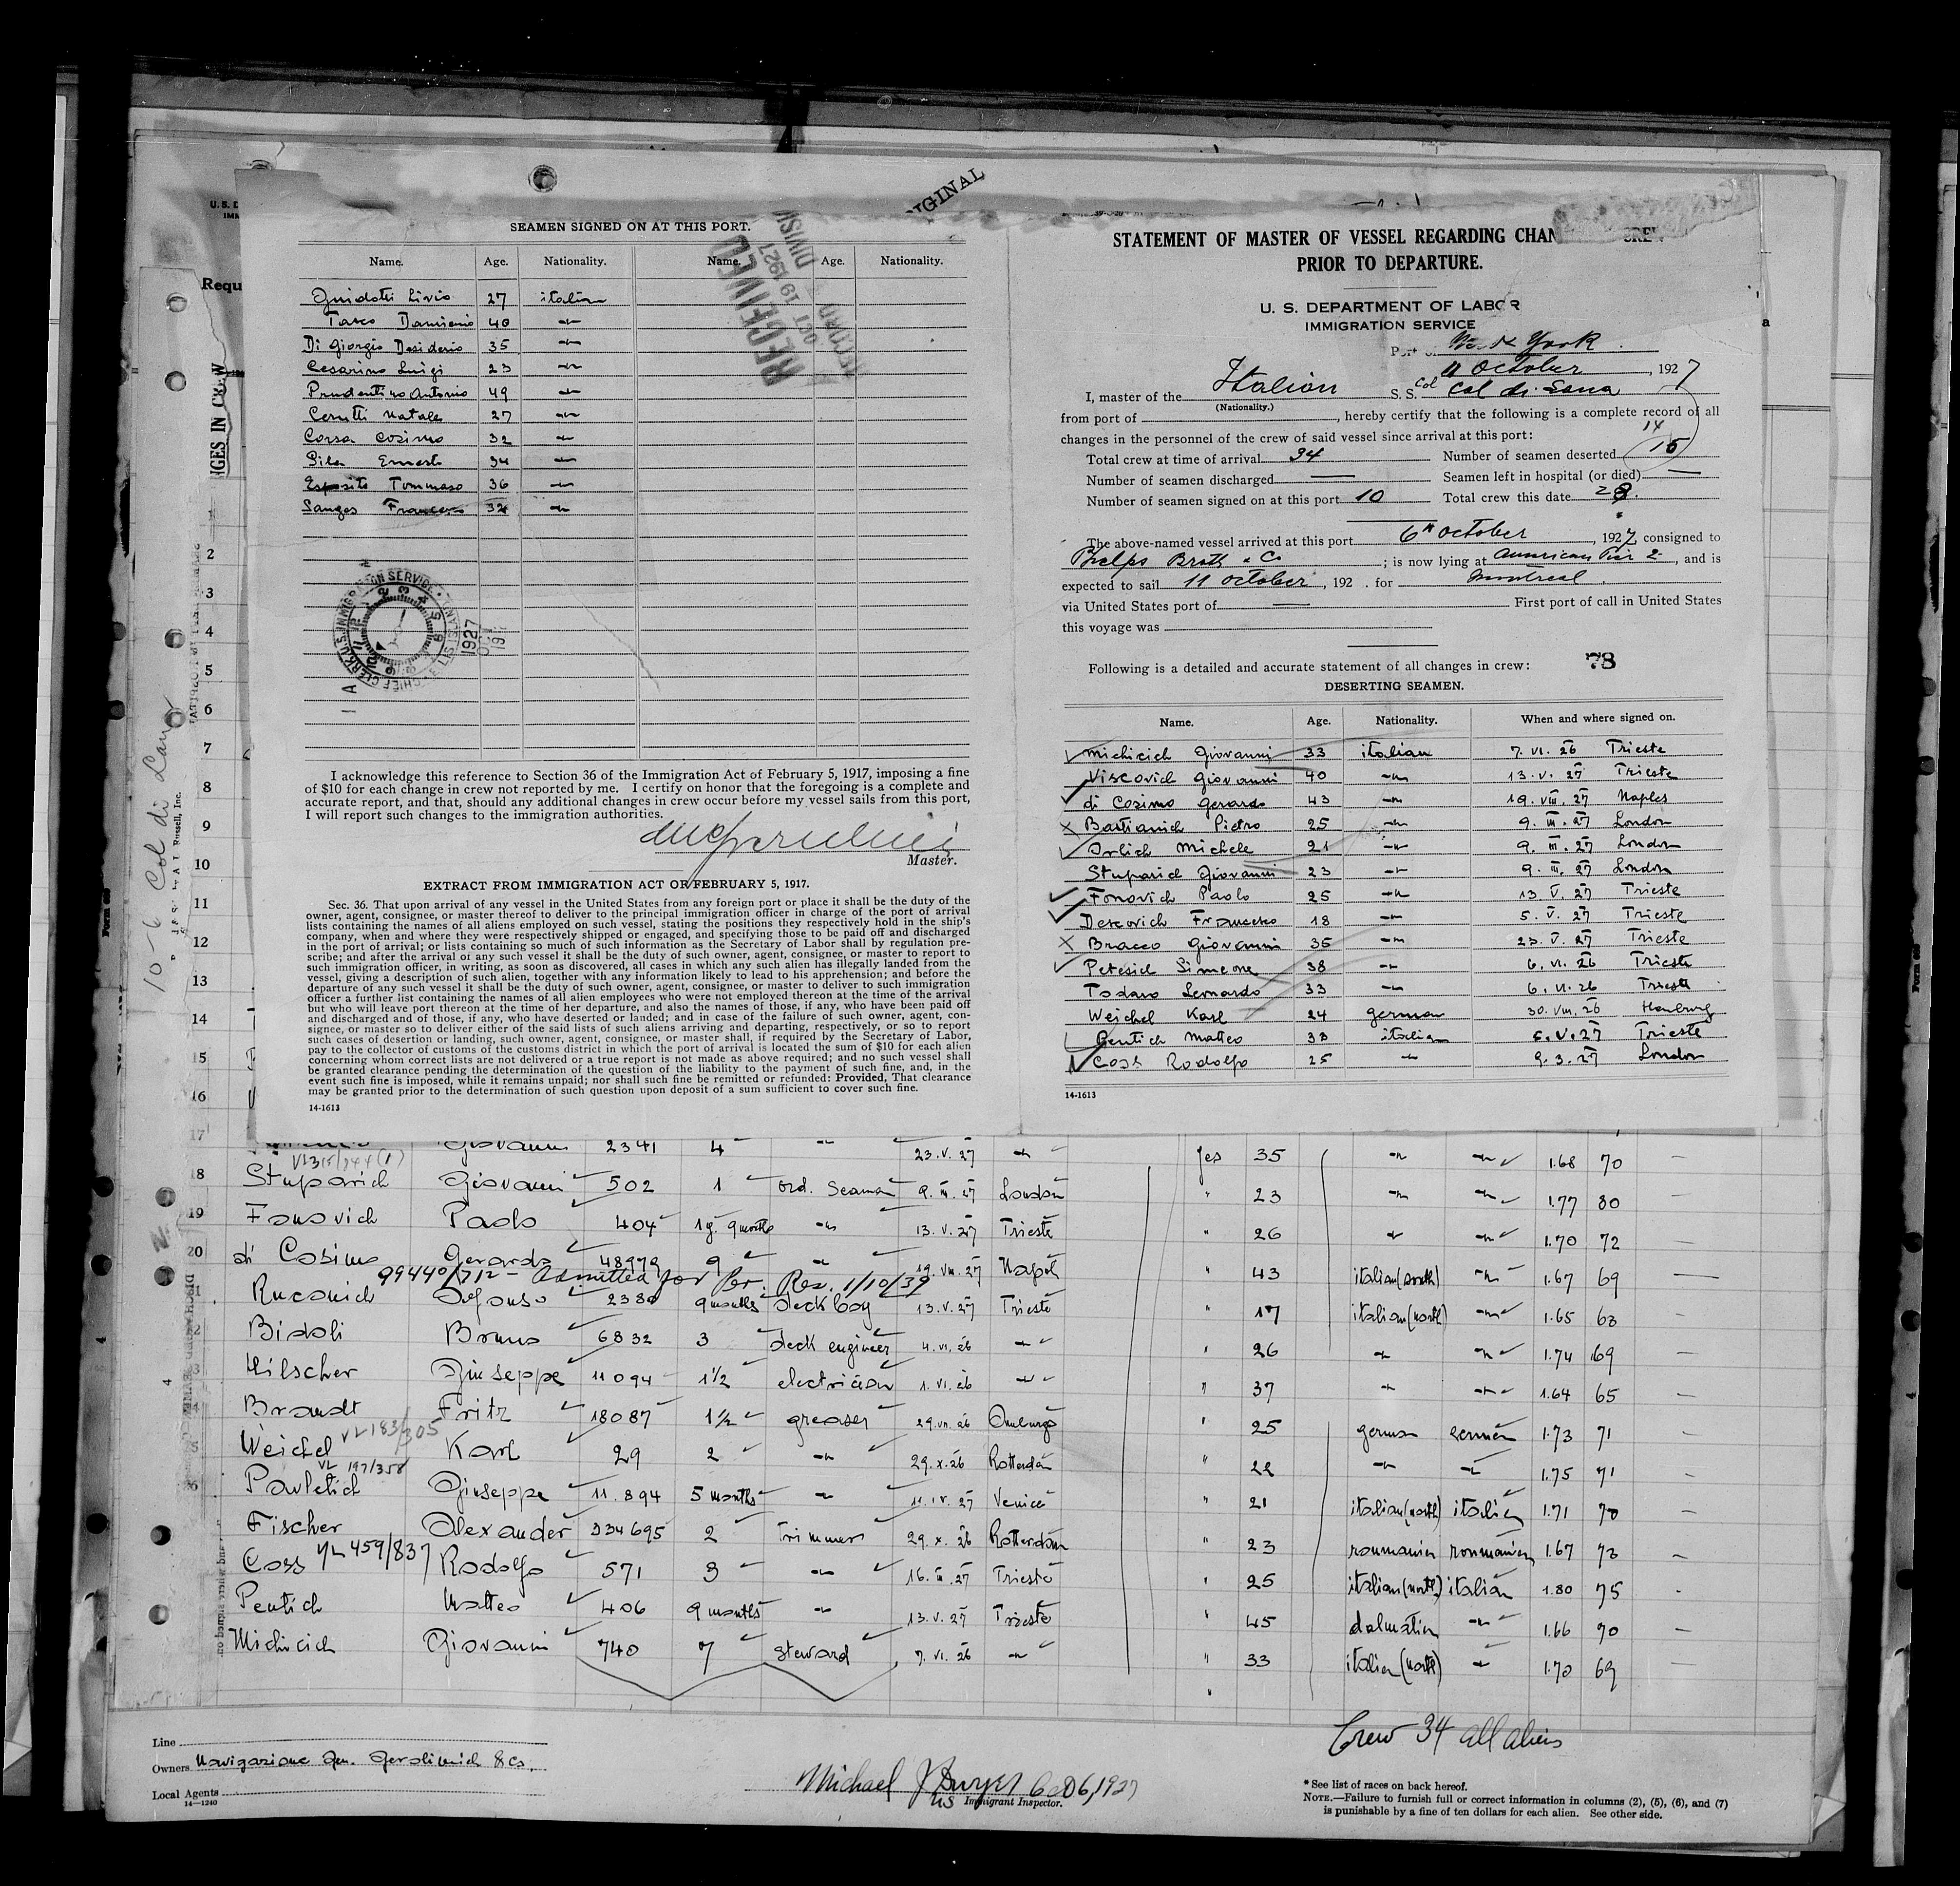 U. S. D
IMM
Requ
NGES IN CREW
10-6 Col di Lana
ORIGINAL
SEAMEN SIGNED ON AT THIS PORT.
Name. Age. Nationality. Name. Age. Nationality.
RECEIVED
OCT 19 1927
RECORD DIVISI
Guidotti Livio 27 italian
Tasco Damiano 40 -"-
Di Giorgio Desiderio 35 -"-
Cesarino Luigi 23 -"-
Prudentino Antonio 49 -"-
Cerutti Natale 27 -"-
Corsa Cosimo 32 -"-
Pila Ernesto 34 -"-
Esposito Tommaso 36 -"-
Sanges Francesco 32 -"-
CHIEF CLERK U.S. IMMIGRATION SERVICE
1927
I acknowledge this reference to Section 36 of the Immigration Act of February 5, 1917, imposing a fine
of $10 for each change in crew not reported by me. I certify on honor that the foregoing is a complete and
accurate report, and that, should any additional changes in crew occur before my vessel sails from this port,
I will report such changes to the immigration authorities.
Master.
EXTRACT FROM IMMIGRATION ACT OF FEBRUARY 5, 1917.
Sec. 36. That upon arrival of any vessel in the United States from any foreign port or place it shall be the duty of the
owner, agent, consignee, or master thereof to deliver to the principal immigration officer in charge of the port of arrival
lists containing the names of all aliens employed on such vessel, stating the positions they respectively hold in the ship's
company, when and where they were respectively shipped or engaged, and specifying those to be paid off and discharged
in the port of arrival; or lists containing so much of such information as the Secretary of Labor shall by regulation pre-
scribe; and after the arrival of any such vessel it shall be the duty of such owner, agent, consignee, or master to report to
such immigration officer, in writing, as soon as discovered, all cases in which any such alien has illegally landed from the
vessel, giving a description of such alien, together with any information likely to lead to his apprehension; and before the
departure of any such vessel it shall be the duty of such owner, agent, consignee, or master to deliver to such immigration
officer a further list containing the names of all alien employees who were not employed thereon at the time of the arrival
but who will leave port thereon at the time of her departure, and also the names of those, if any, who have been paid off
and discharged and of those, if any, who have deserted or landed; and in case of the failure of such owner, agent, con-
signee, or master so to deliver either of the said lists of such aliens arriving and departing, respectively, or so to report
such cases of desertion or landing, such owner, agent, consignee, or master shall, if required by the Secretary of Labor,
pay to the collector of customs of the customs district in which the port of arrival is located the sum of $10 for each alien
concerning whom correct lists are not delivered or a true report is not made as above required; and no such vessel shall
be granted clearance pending the determination of the question of the liability to the payment of such fine, and, in the
event such fine is imposed, while it remains unpaid; nor shall such fine be remitted or refunded: Provided, That clearance
may be granted prior to the determination of such question upon deposit of a sum sufficient to cover such fine.
14-1613
STATEMENT OF MASTER OF VESSEL REGARDING CHAN CREW
PRIOR TO DEPARTURE.
U. S. DEPARTMENT OF LABOR
IMMIGRATION SERVICE
Port of New York
11 October, 1927
I, master of the Italian S. S. Col di Lana
(Nationality.)
from port of , hereby certify that the following is a complete record of all
changes in the personnel of the crew of said vessel since arrival at this port:
14
Total crew at time of arrival 34 Number of seamen deserted 15
Number of seamen discharged — Seamen left in hospital (or died) —
Number of seamen signed on at this port 10 Total crew this date 28.
The above-named vessel arrived at this port 6th October, 1927, consigned to
Phelps Broth & Co; is now lying at American Pier 2, and is
expected to sail 11 October, 192 . for Montreal.
via United States port of — First port of call in United States
this voyage was
Following is a detailed and accurate statement of all changes in crew: 78
DESERTING SEAMEN.
Name. Age. Nationality. When and where signed on.
Michicich Giovanni 33 italian 7. VI. 26 Trieste
Viscovich Giovanni 40 -"- 13. V. 27 Trieste
di Cosimo Gerardo 43 -"- 19. VIII. 27 Naples
Bastianich Pietro 25 -"- 9. III. 27 London
Orlich Michele 21 -"- 9. III. 27 London
Stuparich Giovanni 23 -"- 9. III. 27 London
Fonovich Paolo 25 -"- 13 V. 27 Trieste
Descovich Francesco 18 -"- 5. V. 27 Trieste
Bracco Giovanni 35 -"- 23. V. 27 Trieste
Petesich Simeone 38 -"- 6. VI. 26 Trieste
Todaro Leonardo 33 -"- 6. VI. 26 Trieste
Weichel Karl 24 german 30. VIII. 26 Hamburg
Pentich Matteo 33 italian 5. V. 27 Trieste
Coss Rodolfo 25 -"- 9. 3. 27 London
14-1613
1
2
3
4
5
6
7
8
9
10
11
12
13
14
15
16
17 Giovanni 2341 4 -"- 23. V. 27 -"- yes 35 -"- -"- 1.68 70 —
18 Stuparich Giovanni 502 1 ord. seaman 9. III. 27 London " 23 -"- -"- 1.77 80 —
19 Fonovich Paolo 404 1 y. 9 months -"- 13. V. 27 Trieste " 26 -"- -"- 1.70 72 —
20 di Cosimo Gerardo 48979 9 -"- 19. VIII. 27 Napoli " 43 italian (south) -"- 1.67 69 —
99440/712 - Admitted for Per. Res. 1/10/39
Rucconich Alfonso 2380 9 months deck boy 13. V. 27 Trieste " 17 italian (north) -"- 1.65 63 —
Bidoli Bruno 6832 3 deck engineer 4. VI. 26 -"- " 26 -"- -"- 1.74 69 —
Hilscher Giuseppe 11094 1 1/2 electrician 1. VI. 26 -"- " 37 -"- -"- 1.64 65 —
Brandt Fritz 18087 1 1/2 greaser 29. VII. 26 " 25 german german 1.73 71 —
VL 183/305
Weichel Karl 29 2 -"- 29. X. 26 Rotterdam " 22 -"- -"- 1.75 71 —
VL 197/358
Pavletich Giuseppe 11.894 5 months -"- 11. IV. 27 Venice " 21 italian (north) italian 1.71 70 —
Fischer Alexander D34695 2 trimmer 29. X. 26 Rotterdam " 23 roumanien roumanien 1.67 73 —
Coss VL 459/837 Rodolfo 571 3 -"- 16. III. 27 Trieste " 25 italian (north) italian 1.80 75 -
Pentich Matteo 406 9 months -"- 13. V. 27 Trieste " 45 dalmatien -"- 1.66 70 —
Michicich Giovanni 740 7 steward 7. VI. 26 -"- " 33 italian (north) -"- 1.70 69 —
Crew 34 all aliens
Line
Owners Navigazione Gen. Gerolimich & Co.
Local Agents
14—1240
Michael J Dwyer Oct 6, 1927
US Immigrant Inspector.
* See list of races on back hereof.
NOTE.—Failure to furnish full or correct information in columns (2), (5), (6), and (7)
is punishable by a fine of ten dollars for each alien. See other side.